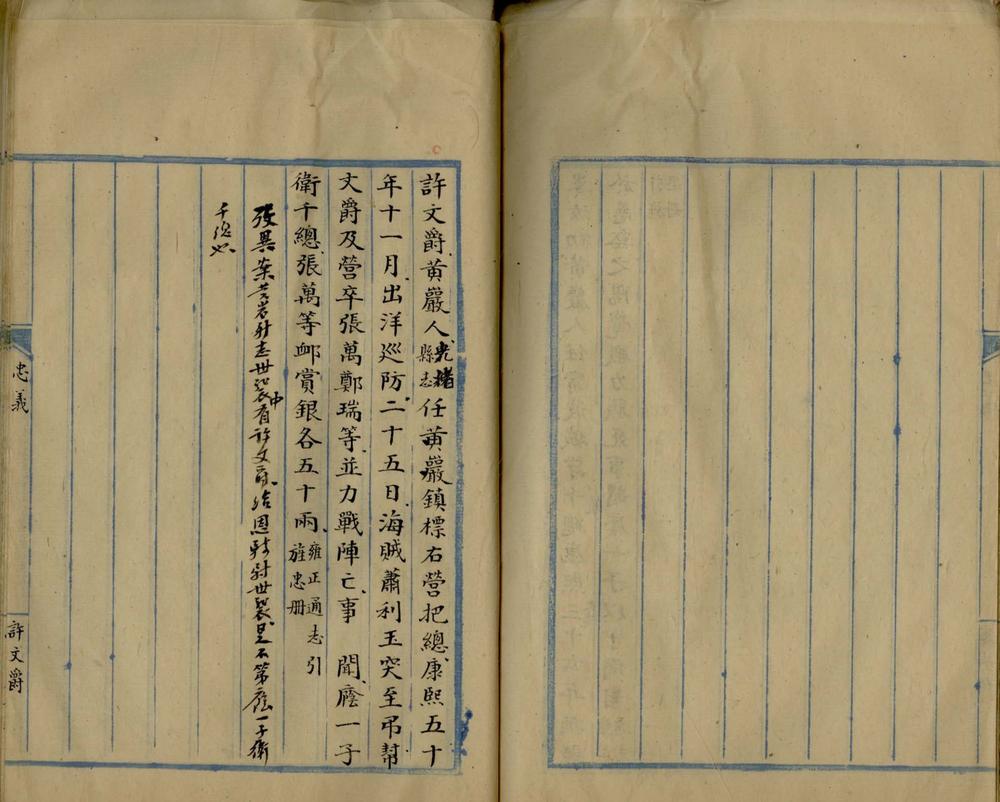 許文爵黃巖人光緒縣志任黃巖鎮標右營把總康熙五十
年十一月出洋巡防二十五日海賊蕭利玉突至吊幫
文爵及營卒張萬鄭瑞等並力戰陣亡事 聞廕一子
衛千總張萬等卹賞銀各五十兩雍正通志引旌忠冊
考異 案黃岩升志世襲中有許文爵給恩騎尉世襲是不第廕一子衛
千總也
忠義
許文爵